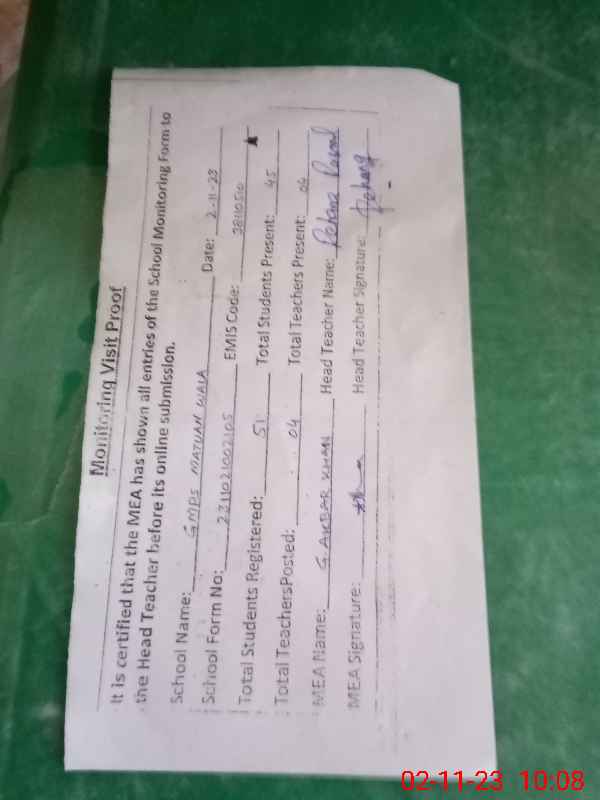 Monitoring Visit Proof
It is certified that the MEA has shown all entries of the School Monitoring Form to
the Head Teacher before its online submission.
School Name: GMPS MATUAN WALA Date: 2-11-23
School Form No: 2311021002105 EMIS Code: 38110510
Total Students Registered: 51 Total Students Present: 45
Total TeachersPosted: 04 Total Teachers Present: 04
MEA Name: G. AKBAR KHAN Head Teacher Name:
MEA Signature: Head Teacher Signature:
02-11-23 10:08